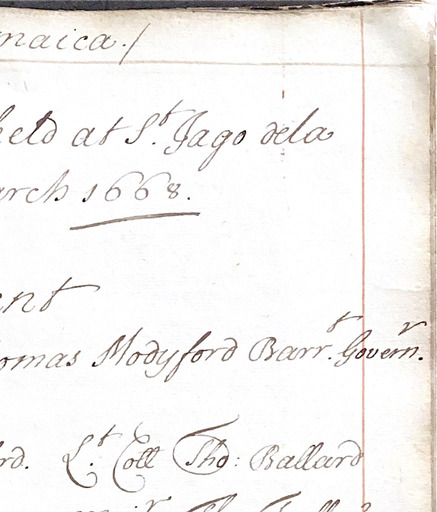 maica./
held at St Jago dela
arch 1668.
ent
omas Modyford Barrt. Governr.
rd. Lt. Coll Tho: Ballard